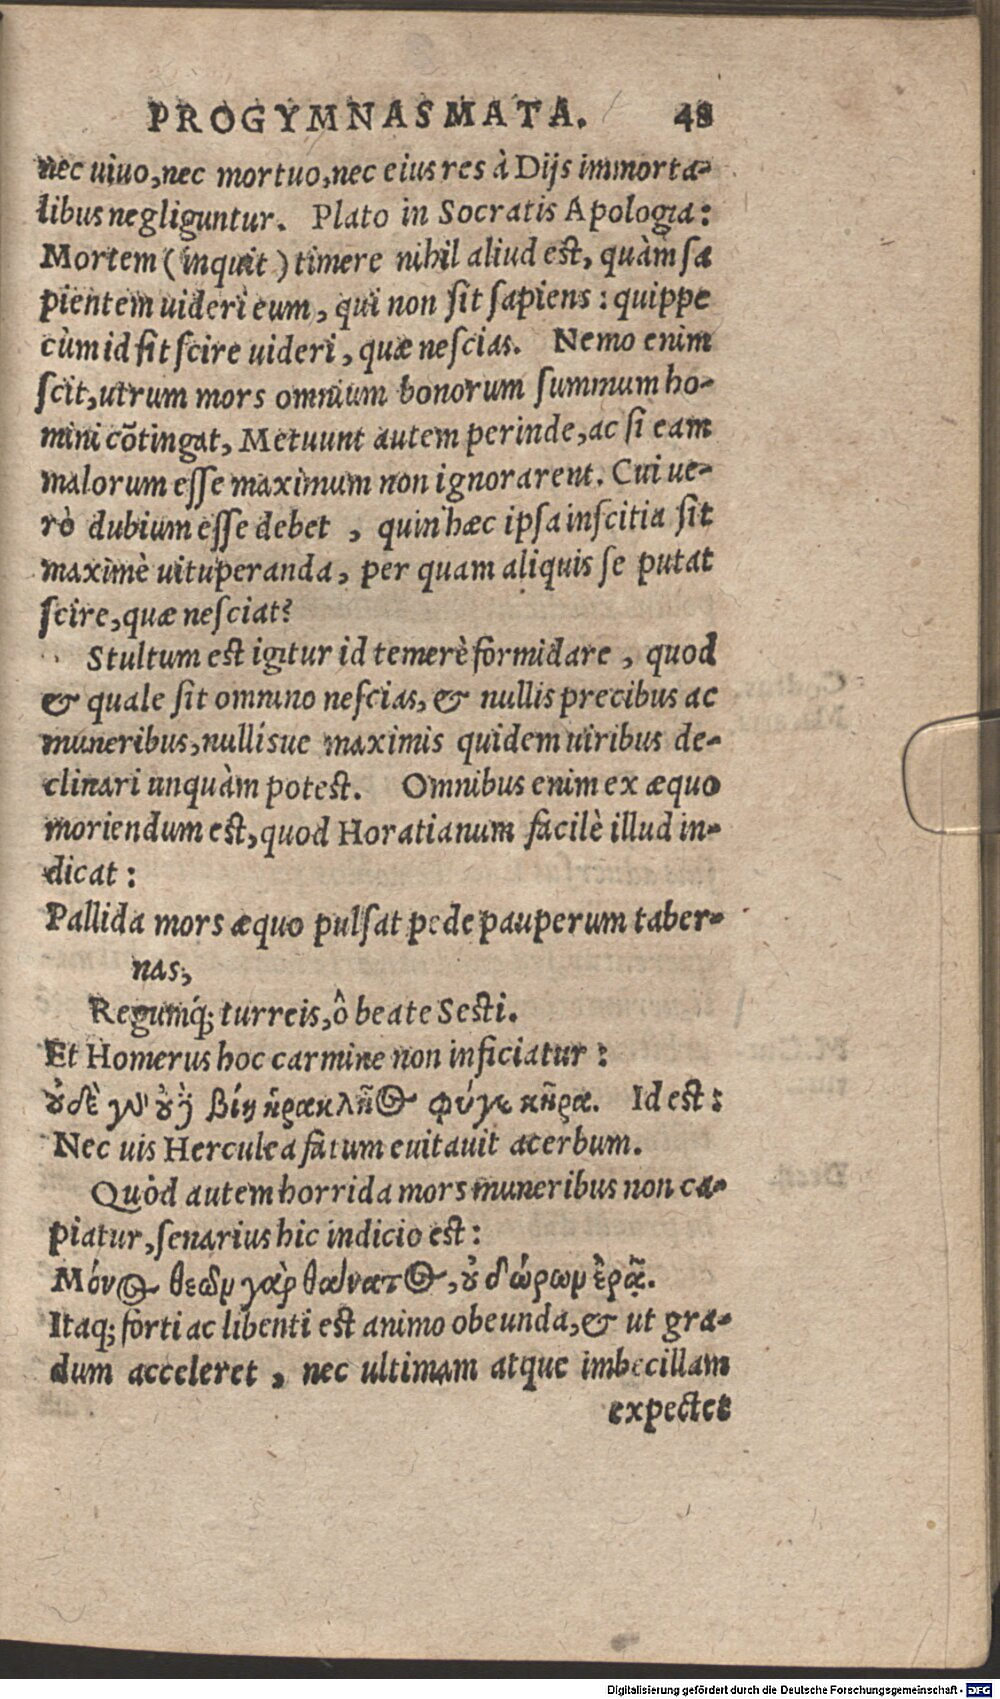 PROGYMNASMATA. 48
nec uiuo, nec mortuo, nec eius res à Dijs immorta-
libus negliguntur. Plato in Socratis Apologia:
Mortem (inquit) timere nihil aliud est, quàm sa
pientem uideri eum, qui non sit sapiens: quippe
cùm id sit scire uideri, quæ nescias. Nemo enim
scit, utrum mors omnium bonorum summum ho-
mini cõtingat, Metuunt autem perinde, ac si eam
malorum esse maximum non ignorarent. Cui ue-
rò dubium esse debet, quin hæc ipsa inscitia sit
maximè uituperanda, per quam aliquis se putat
scire, quæ nesciat?
Stultum est igitur id temerè formidare, quod
& quale sit omnino nescias, & nullis precibus ac
muneribus, nullísue maximis quidem uiribus de-
clinari unquàm potest. Omnibus enim ex æquo
moriendum est, quod Horatianum facilè illud in-
dicat:
Pallida mors æquo pulsat pede pauperum taber-
nas,
Regumq́; turreis, ô beate Sesti.
Et Homerus hoc carmine non inficiatur:
οὐδὲ γὰρ οὐδὲ βίη ἡρακλῆος φύγε κῆρα. Id est:
Nec uis Herculea fatum euitauit acerbum.
Quòd autem horrida mors muneribus non ca-
piatur, senarius hic indicio est:
Μόνος θεῶν γὰρ θάνατος, οὐ δώρων ἐρᾷ.
Itaq; forti ac libenti est animo obeunda, & ut gra-
dum acceleret, nec ultimam atque imbecillam
expectet
Digitalisierung gefördert durch die Deutsche Forschungsgemeinschaft - DFG